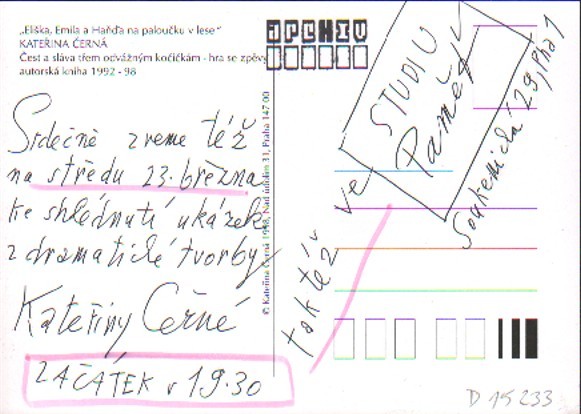 „Eliška, Emila a Haňďa na paloučku v lese“
KATEŘINA ČERNÁ
Čest a sláva třem odvážným kočičkám - hra se zpěvy
autorská kniha 1992 - 98
Srdečně zveme též
na středu 23. března
ke shlédnutí ukázek
z dramatické tvorby
Kateřiny Černé
ZAČÁTEK v 19.30
© Kateřina Černá 1998, Nad údolím 33, Praha 147 00
ARCHIV
taktéž ve
STUDIU
Paměť
Soukenická 29, Pha 1
D 15 233